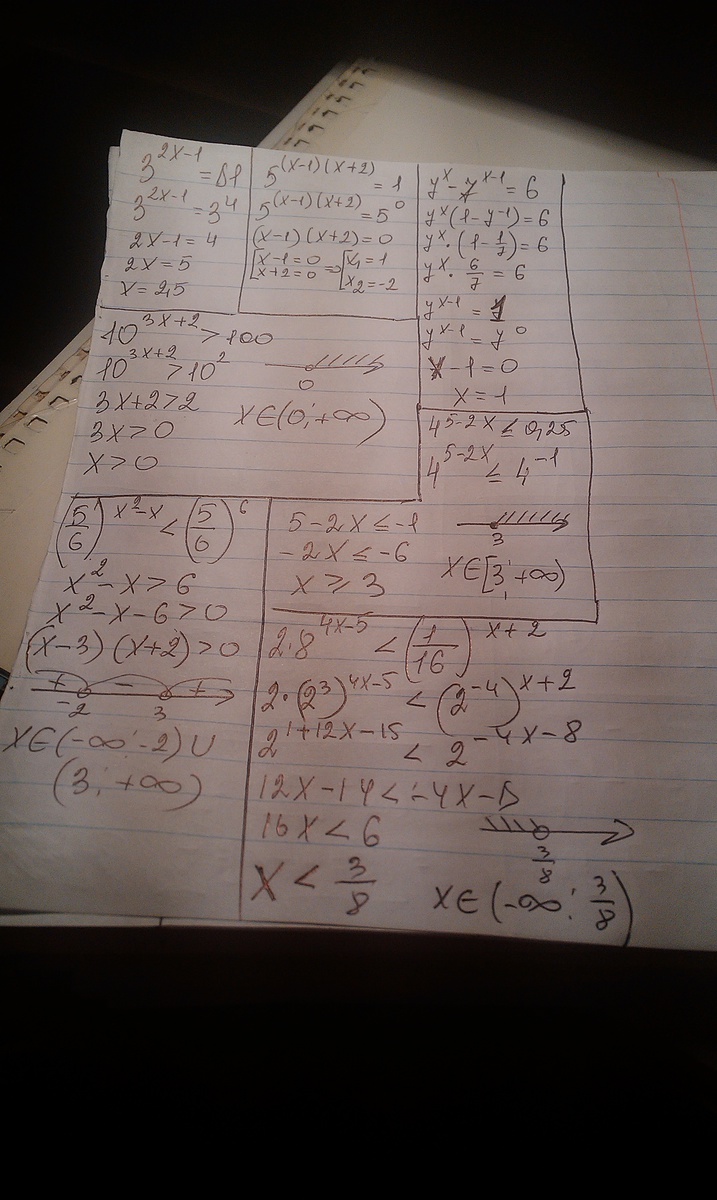 3^{2x-1} = 81
3^{2x-1} = 3^4
2x-1 = 4
2x = 5
x = 2,5
5^{(x-1)(x+2)} = 1
5^{(x-1)(x+2)} = 5^0
(x-1)(x+2) = 0
[x-1=0 x+2=0 ⇒ [x_1=1 x_2=-2
7^x - 7^{x-1} = 6
7^x(1-7^{-1}) = 6
7^x·(1-1/7) = 6
7^x·6/7 = 6
7^{x-1} = 1
7^{x-1} = 7^0
x-1 = 0
x = 1
10^{3x+2} > 100
10^{3x+2} > 10^2
3x+2>2
3x>0
x>0
0
x∈(0;+∞)
4^{5-2x} ≤ 0,25
4^{5-2x} ≤ 4^{-1}
5-2x ≤ -1
-2x ≤ -6
x ≥ 3
3
x∈[3;+∞)
(5/6)^{x^2-x} < (5/6)^6
x^2-x>6
x^2-x-6>0
(x-3)(x+2)>0
+ - +
-2 3
x∈(-∞;-2)∪
(3;+∞)
2·8^{4x-5} < (1/16)^{x+2}
2·(2^3)^{4x-5} < (2^{-4})^{x+2}
2^{1+12x-15} < 2^{-4x-8}
12x-14<-4x-8
16x<6
x < 3/8
3/8
x∈(-∞;3/8)